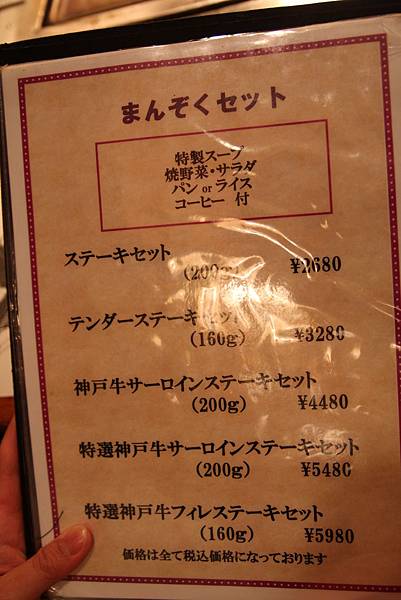 まんぞくセット
特製スープ
焼野菜・サラダ
パン or ライス
コーヒー 付
ステーキセット
(200g) ¥2680
テンダーステーキセット
(160g) ¥3280
神戸牛サーロインステーキセット
(200g) ¥4480
特選神戸牛サーロインステーキセット
(200g) ¥5480
特選神戸牛フィレステーキセット
(160g) ¥5980
価格は全て税込価格になっております